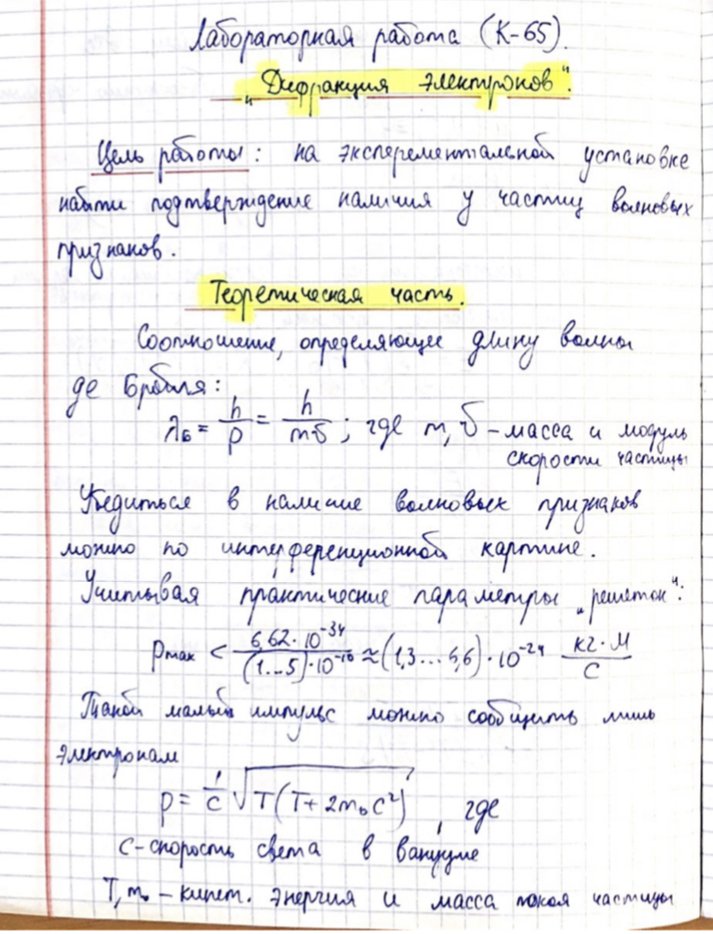 Лабораторная работа (К-65).
„Дифракция электронов".
Цель работы: на эксперементальной установке
найти подтверждение наличия у частиц волновых
признаков.
Теоретическая часть.
Соотношение, определяющее длину волны
де Бройля:
λБ = h/p = h/mυ; где m, υ – масса и модуль
скорости частицы
Убедиться в наличие волновых признаков
можно по интерференционной картине.
Учитывая практические параметры „решеток":
pmax < 6,62·10⁻³⁴/(1...5)·10⁻¹⁰ ≈ (1,3...6,6)·10⁻²⁴ кг·м/с
Такой малый импульс можно сообщить лишь
электронам
p = 1/c √T(T+2m₀c²), где
c – скорость света в вакууме
T, m₀ – кинет. энергия и масса покоя частицы